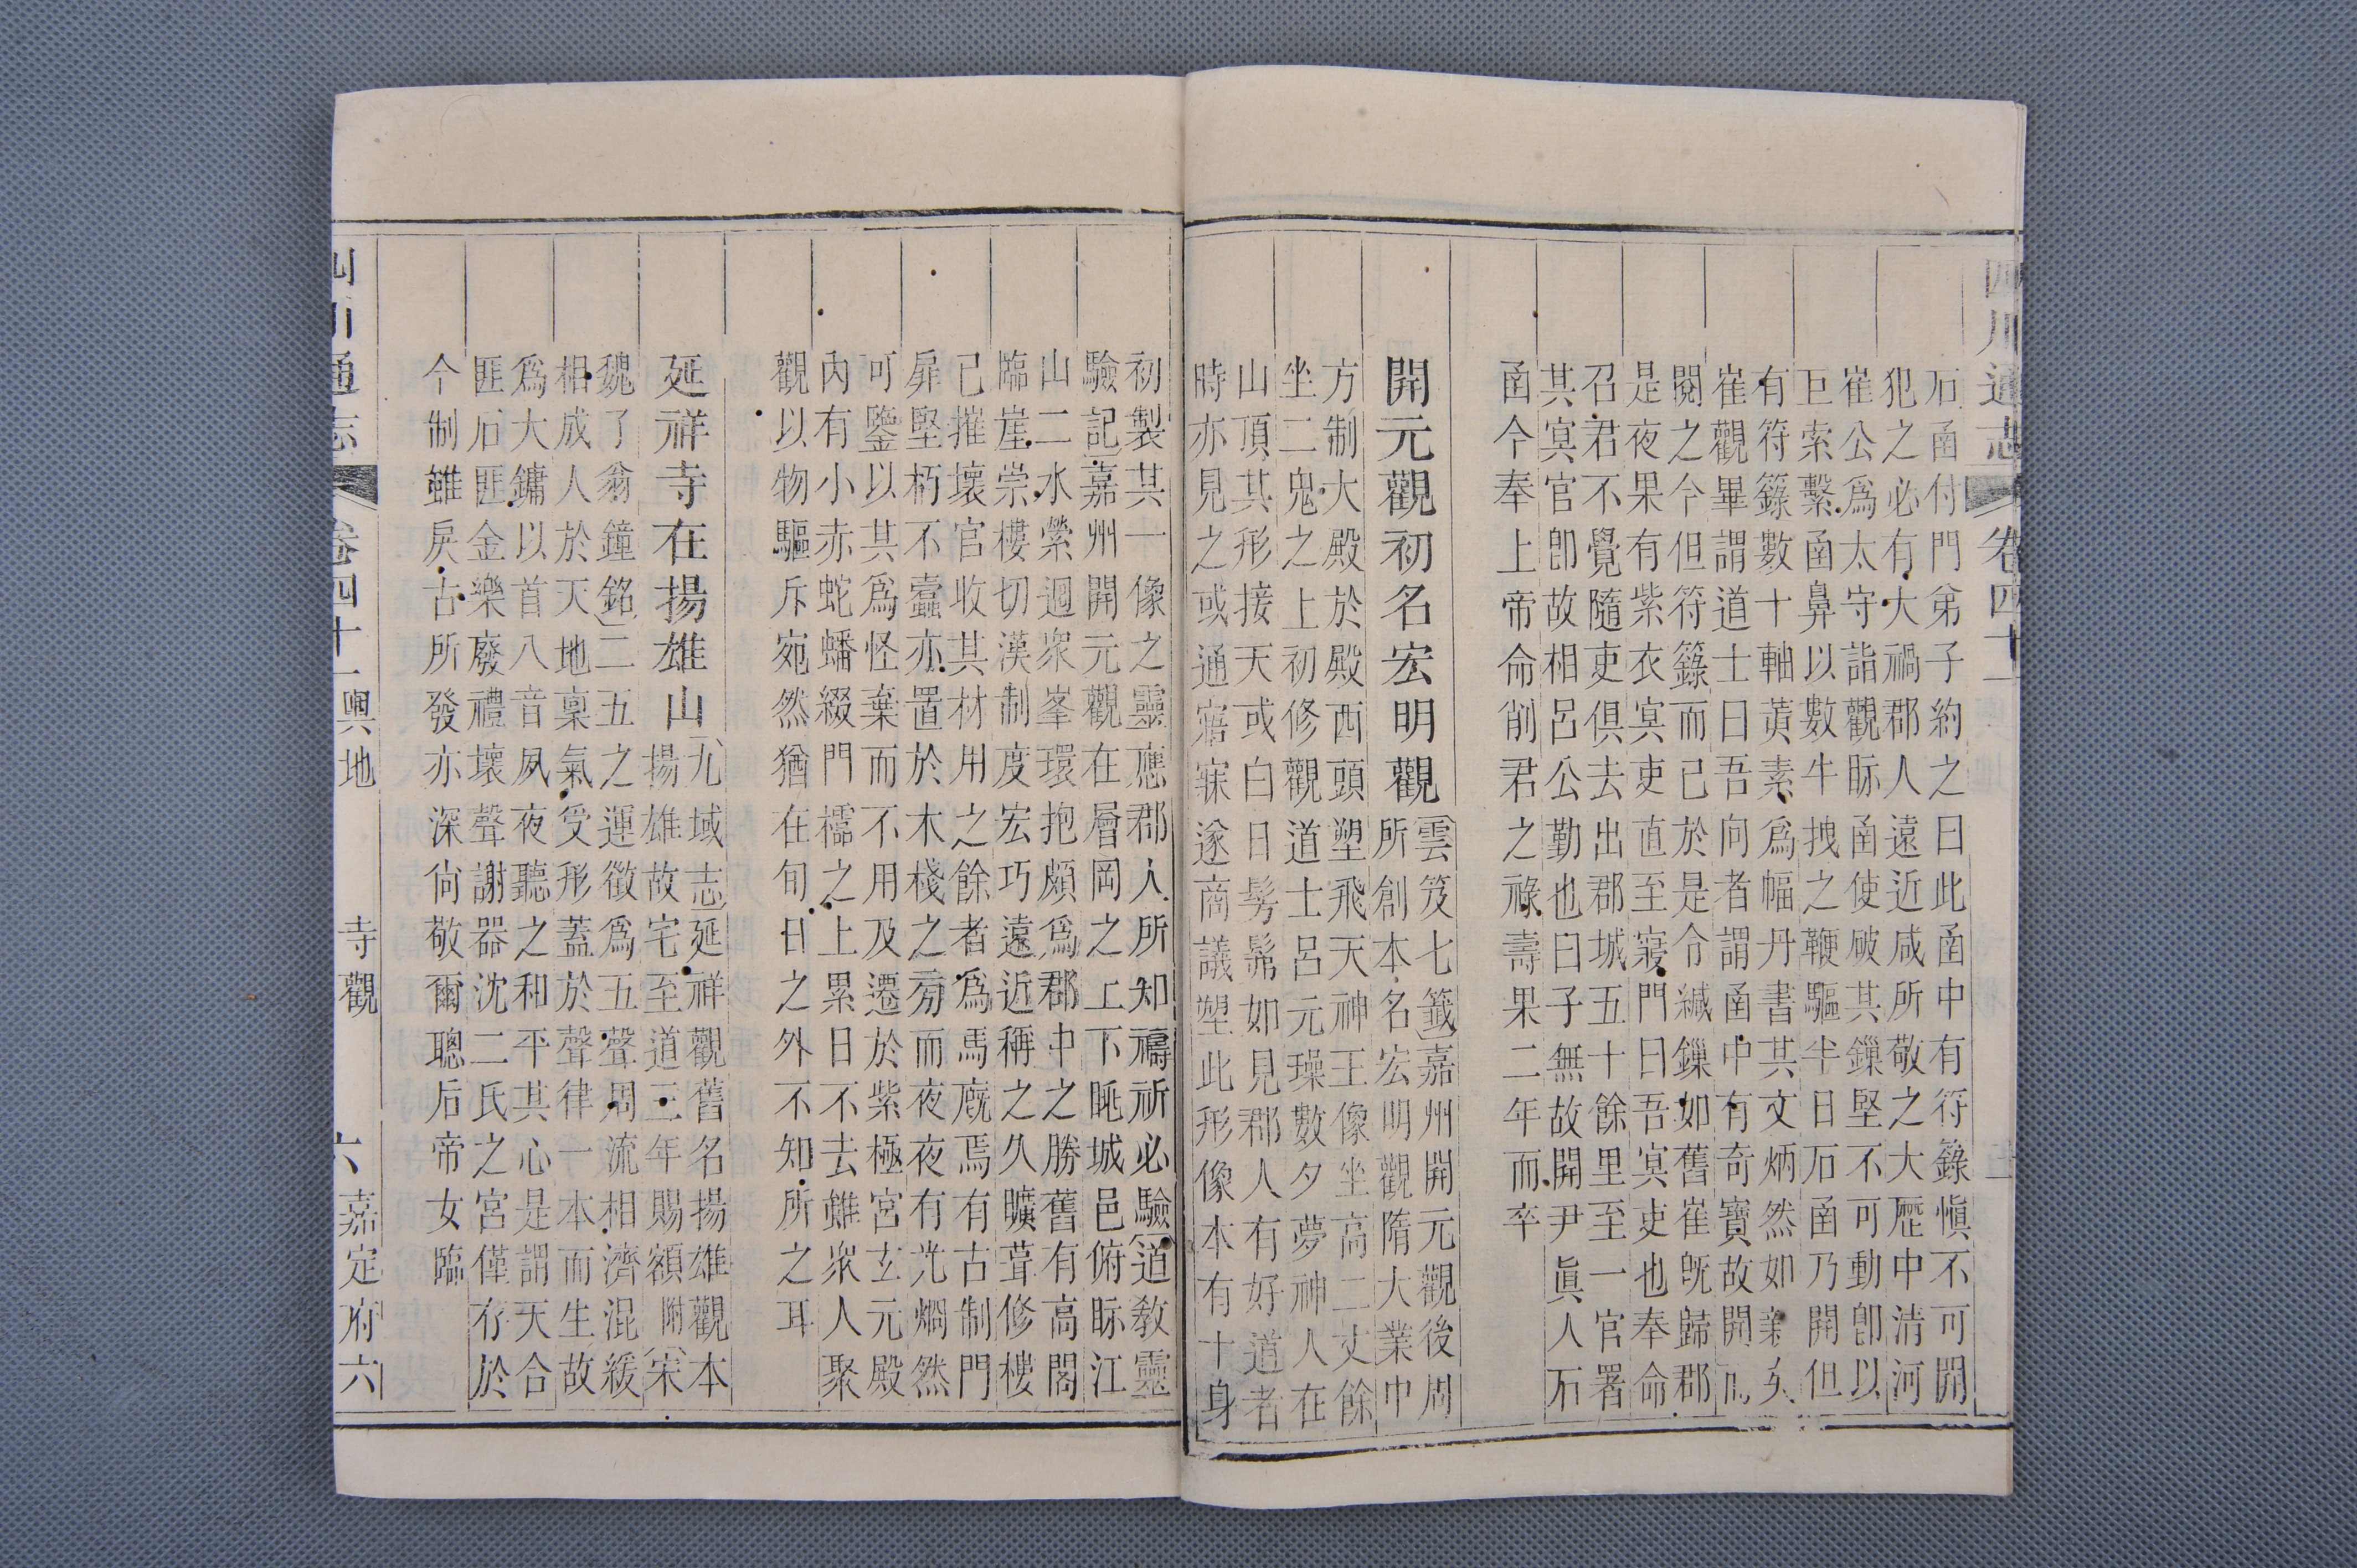 四川通志 卷四十一
石函付門弟子約之曰此函中有符籙愼不可開
犯之必有大禍郡人遠近咸所敬之大歷中清河
崔公爲太守詣觀眎函使破其鏁堅不可動卽以
巨索繫函鼻以數牛拽之鞭驅半日石函乃開但
有符籙數十軸黃素爲幅丹書其文炳然如新
崔觀畢謂道士曰吾向者謂函中有奇寶故開
閱之今但符籙而已於是令緘鏁如舊崔旣歸郡
是夜果有紫衣冥吏直至寢門曰吾冥吏也奉命
召君不覺隨吏俱去出郡城五十餘里至一官署
其冥官卽故相呂公勤也曰子無故開尹眞人石
函今奉上帝命削君之祿壽果二年而卒
開元觀初名宏明觀
雲笈七籤嘉州開元觀後周
所創本名宏明觀隋大業中
方制大殿於殿西頭塑飛天神王像坐高二丈餘
坐二鬼之上初修觀道士呂元璪數夕夢神人在
山頂其形接天或白日髣髴如見郡人有好道者
時亦見之或通寤寐遂商議塑此形像本有十身
初製其一像之靈應郡人所知禱祈必驗道敎靈
驗記嘉州開元觀在層岡之上下眺城邑俯眎江
山二水縈迴衆峯環抱頗爲郡中之勝舊有高閣
臨崖崇樓切漢制度宏巧遠近稱之久曠葺修樓
已摧壞官收其材用之餘者爲馬廐焉有古制門
扉堅朽不蠧亦置於木棧之旁而夜夜有光爓然
可鑒以其爲怪棄而不用及遷於紫極宮玄元殿
內有小赤蛇蟠綴門檽之上累日不去雖衆人聚
觀以物驅斥宛然猶在旬日之外不知所之耳
延祥寺在揚雄山
九域志延祥觀舊名揚雄觀本
揚雄故宅至道三年賜額 附宋
魏了翁鐘銘二五之運徵爲五聲周流相濟混緩
相成人於天地稟氣受形蓋於聲律一本而生故
爲大鏞以首八音夙夜聽之和平其心是謂天合
匪石匪金樂廢禮壞聲謝器沈二氏之宮僅存於
今制雖戾古所發亦深尙敬爾聰后帝女臨
四川通志 卷四十一 輿地 寺觀 六 嘉定府六